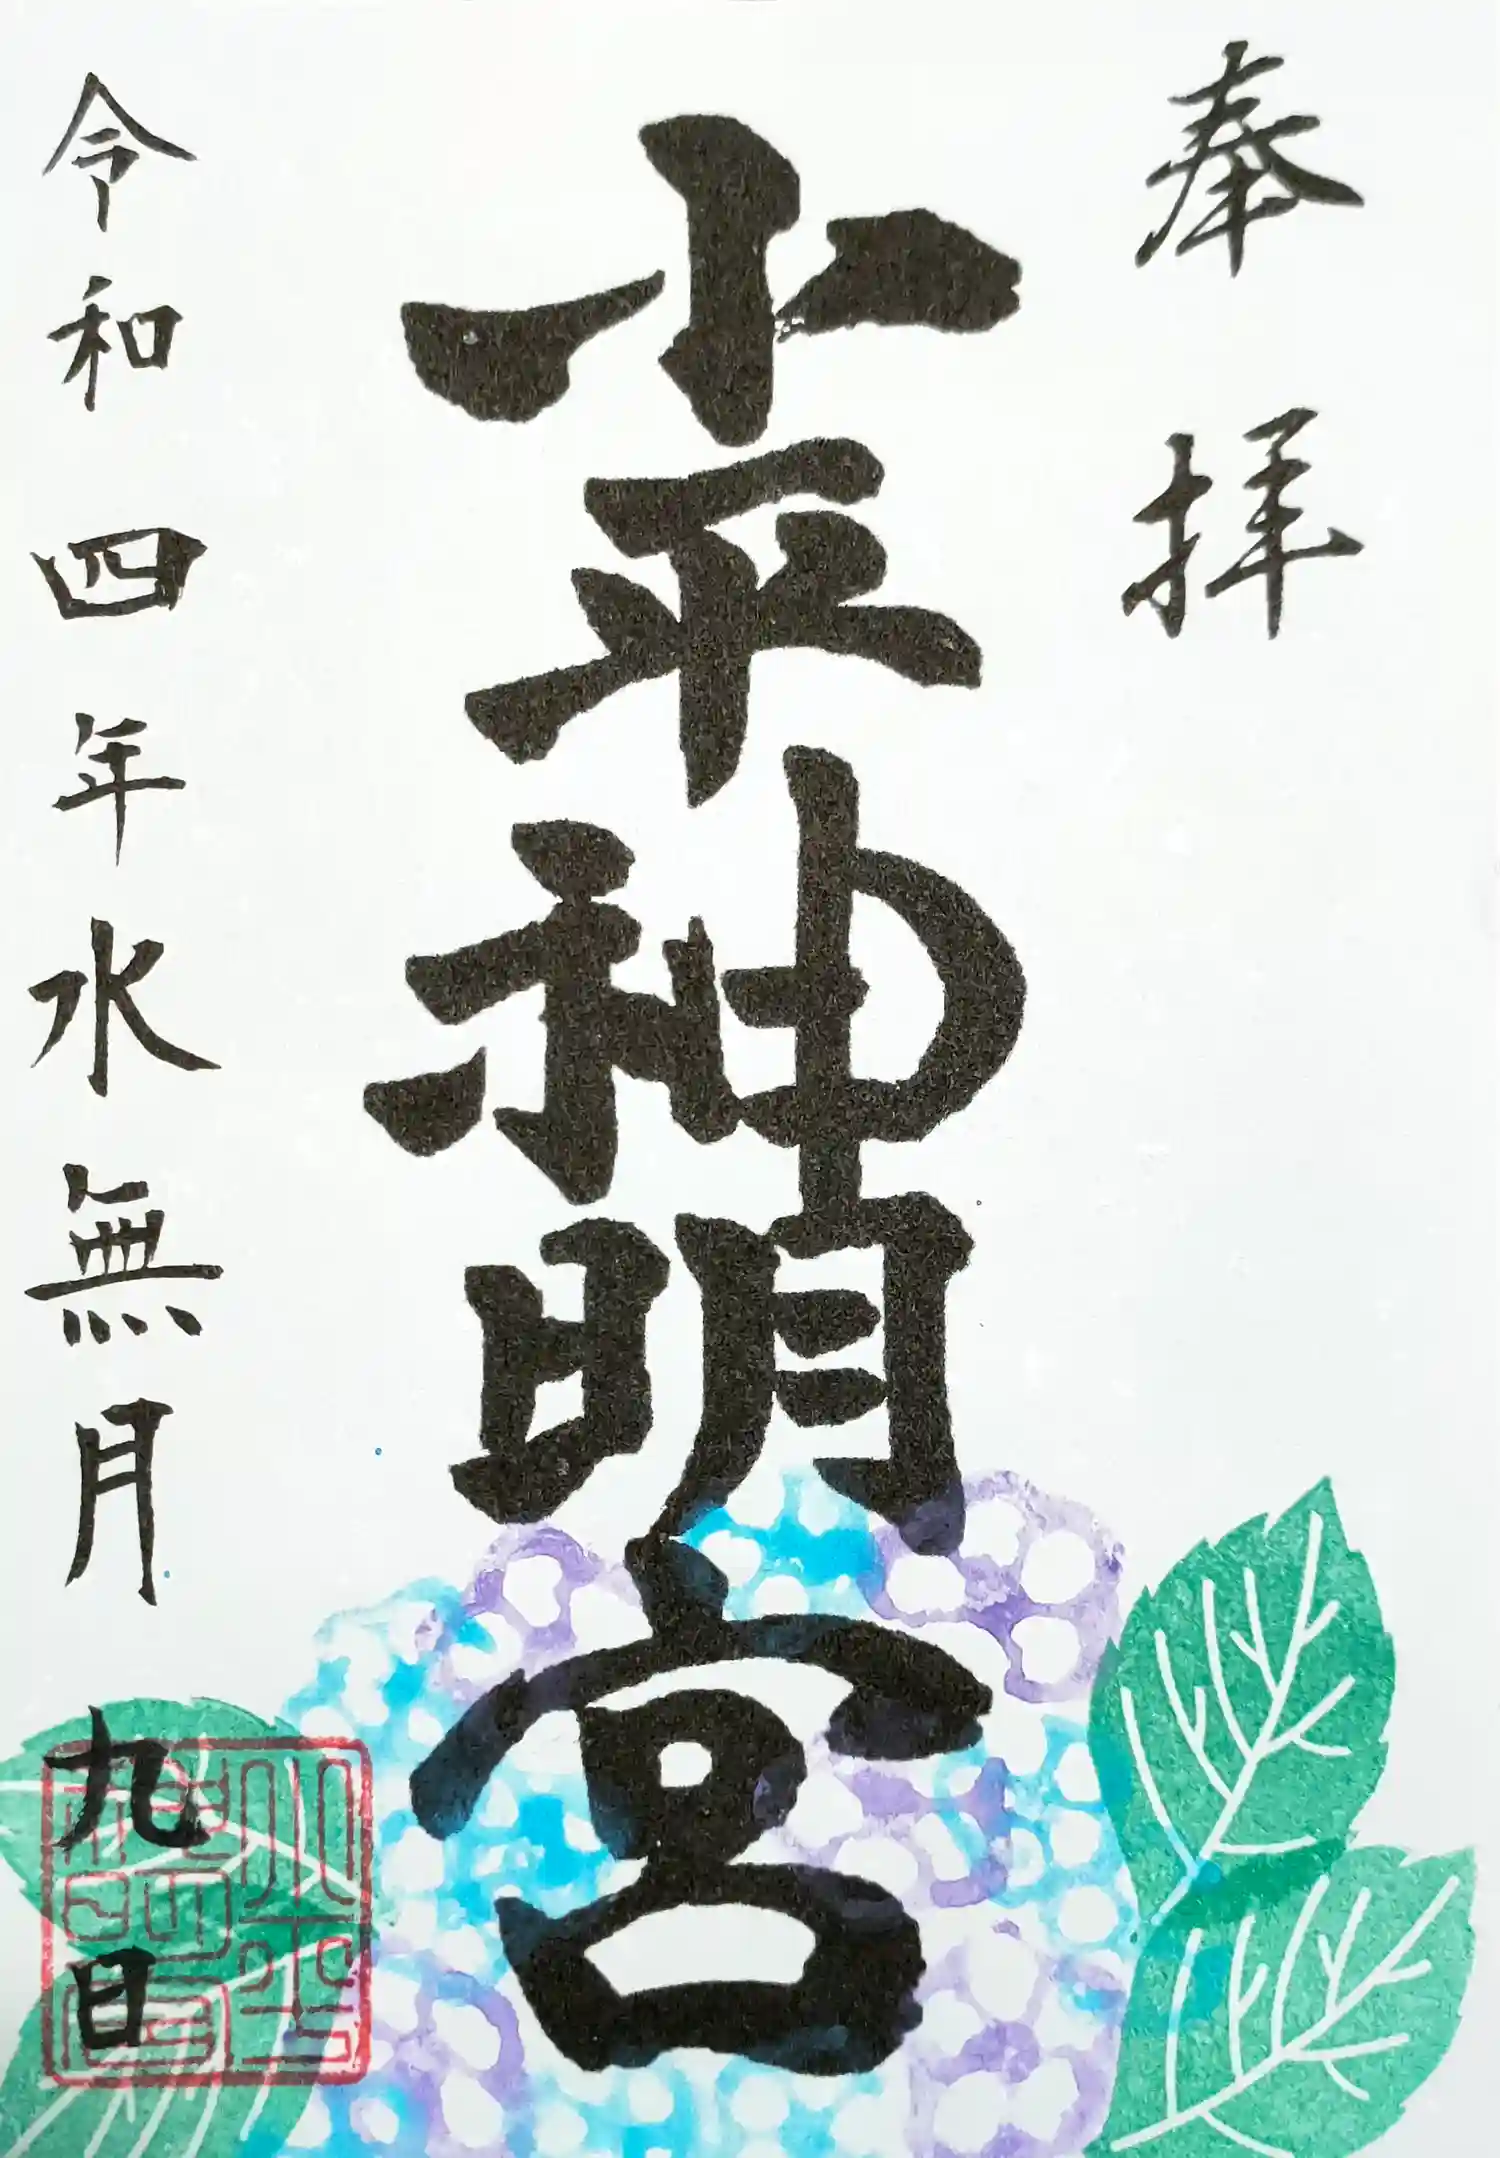 奉拝
小平神明宮
令和四年水無月九日
小平
神明宮